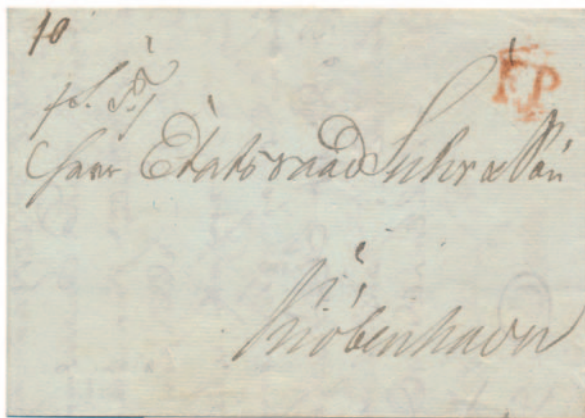 10
FP
p. T.
Herr Etatsraad Suhr & Sön
i
Kiöbenhavn